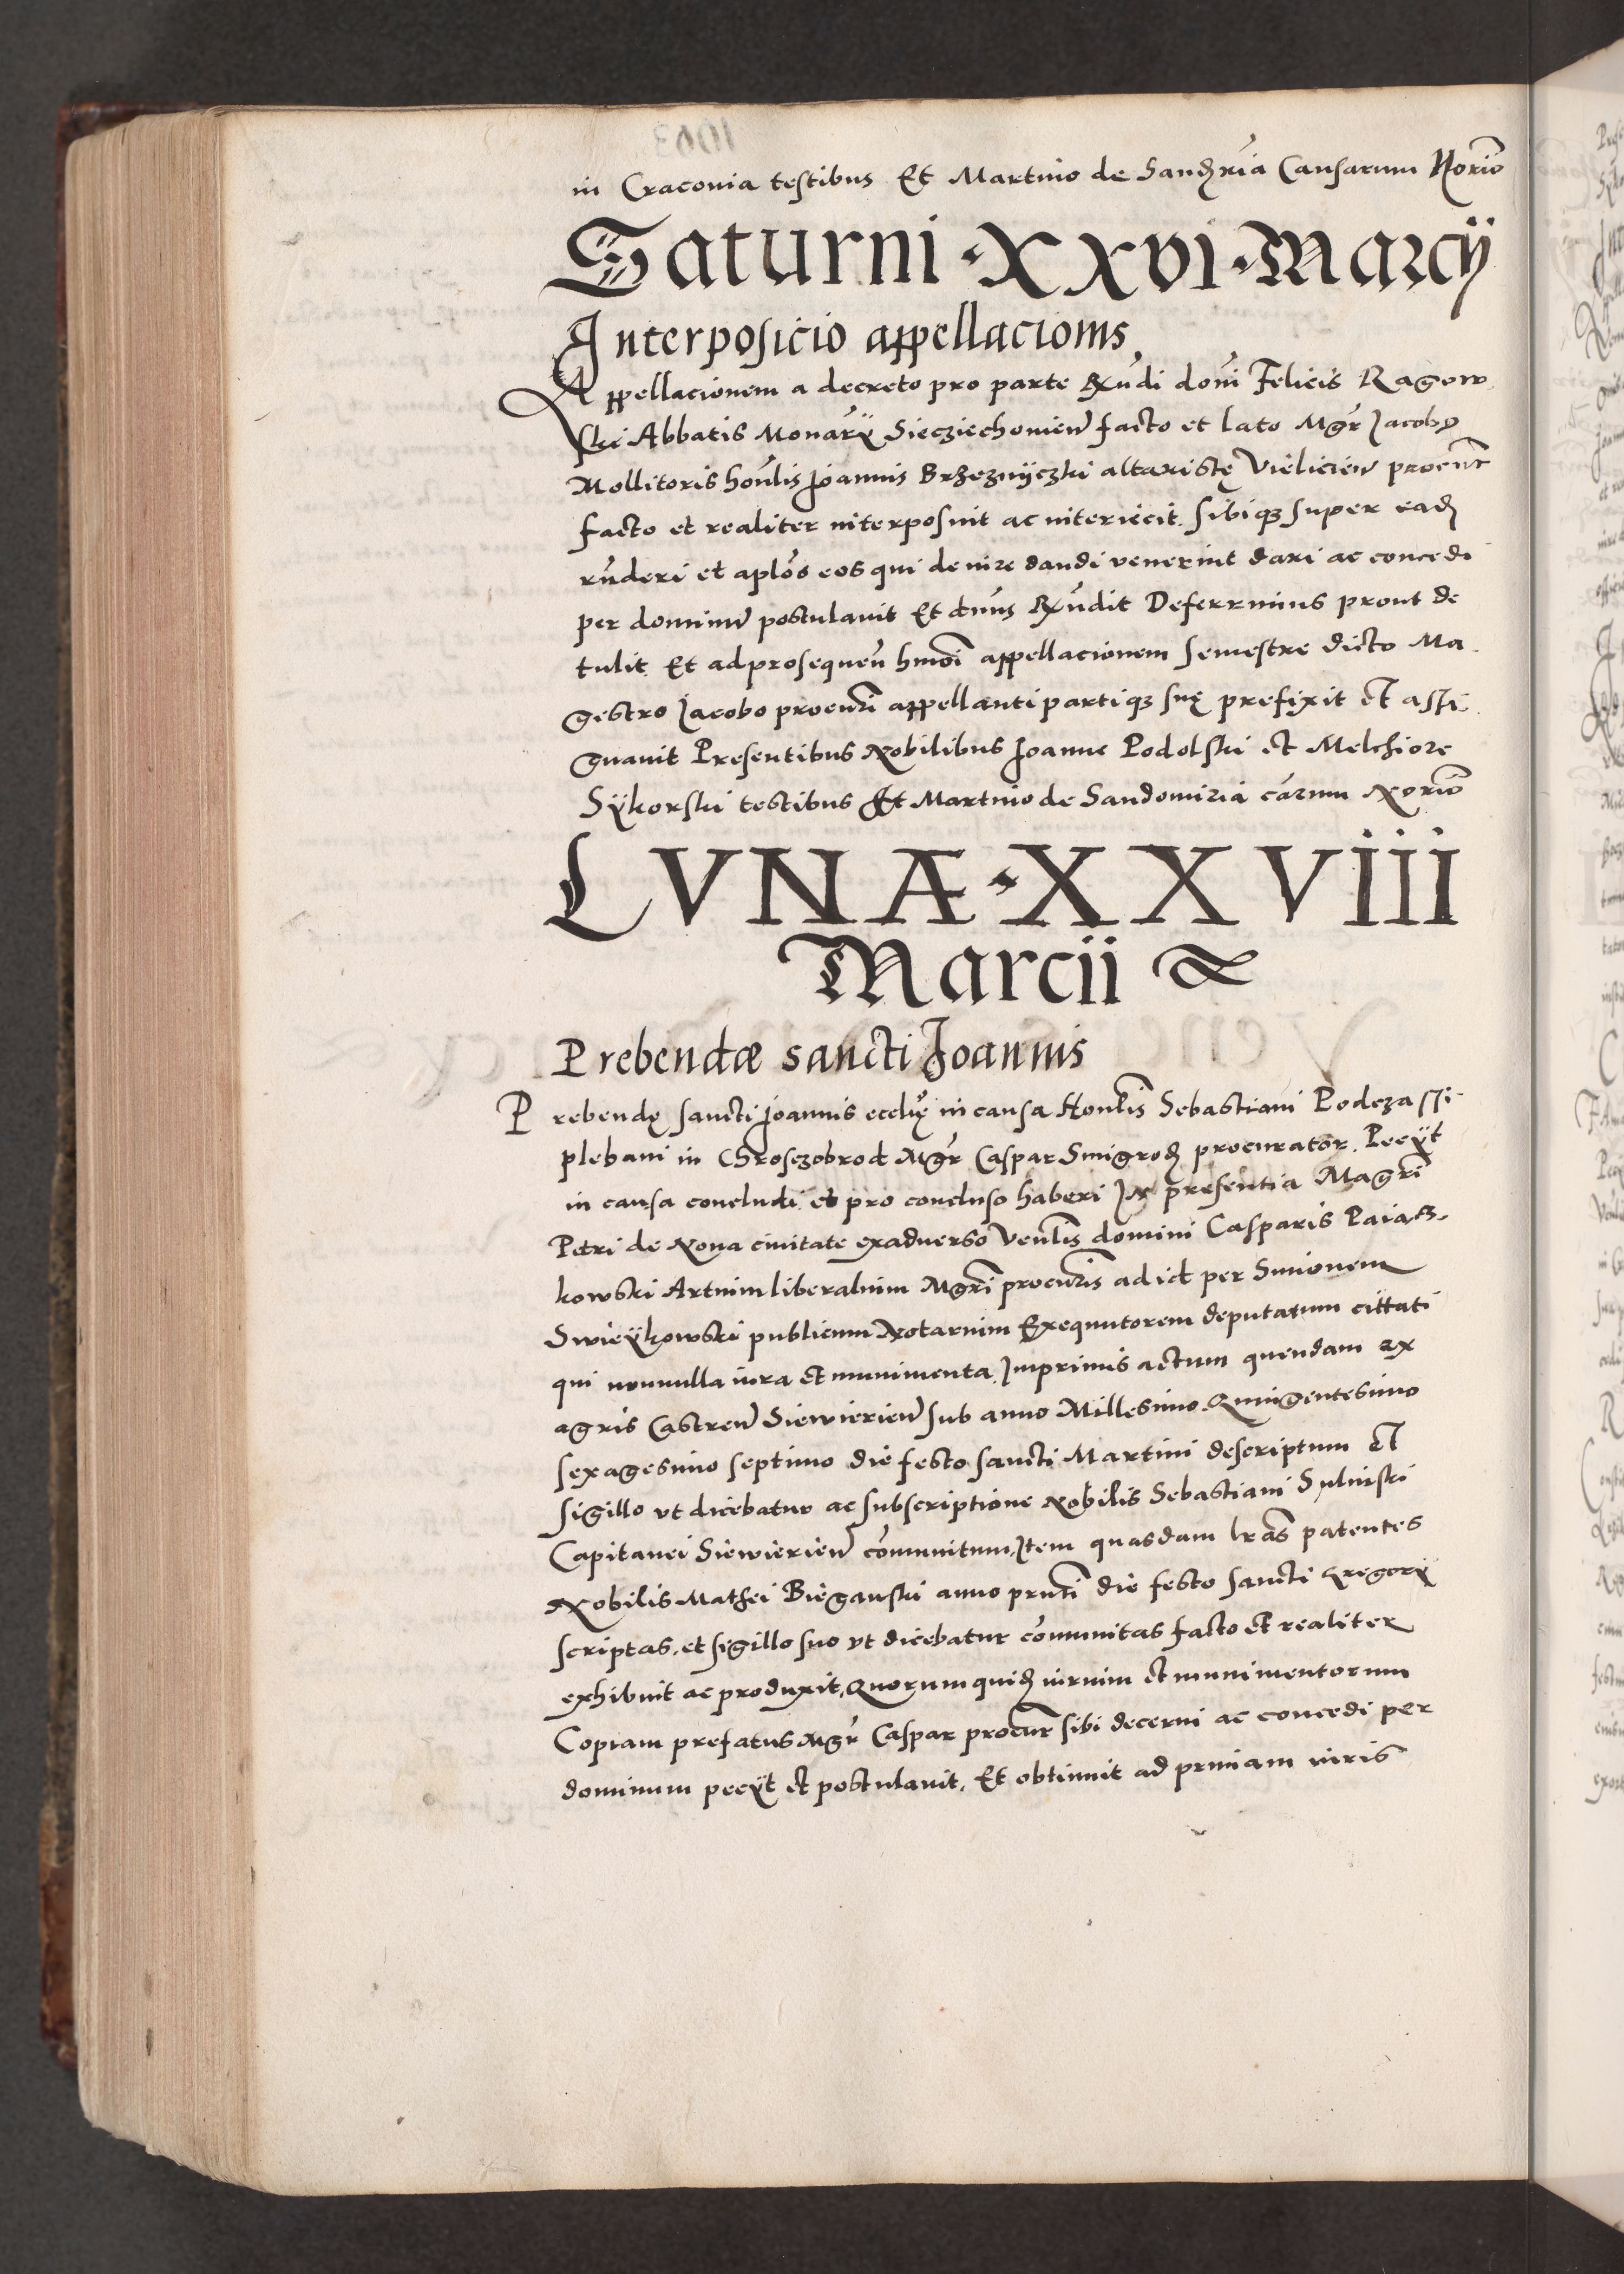 in Craconia testibus Et Martino de Sandxria Causarum Norio
Saturni · XXVI · Marcij
Interposicio appellacionis
Appellacionem a decreto pro parte Rxndi domi Felicis Ragow
ski Abbatis Monarij Siecziechouien facto et lato Mgr Jacobo
Mollitoris honlis Joannis Brzeznÿczki altaristę Vielicien procur
facto et realiter interposuit ac interiecit. sibiq3 super ead
rnderi et aplos eos qui de iure dandi venerint dari ac concedi
per dominum postulauit Et dnus Rxndit Deferrimus prout de
tulit Et ad prosequen hmoi appellacionem semestre dicto Ma
gestro Jacobo procuri appellanti partiq3 suę prefixit et assi
gnauit Presentibus Nobilibus Joanne Podolski et Melchiore
Sÿkorski testibus Et Martino de Sandomiria carum Norio
LVNÆ · XXVIII
Marcii
Prebendæ sancti Joannis
Prebendę sancti Joannis ecclię in causa Honlis Sebastiani Podczassi
plebani in Chrosczobrod Mgr Caspar Smigrod procurator. Peeÿt
in causa concludi et pro concluso haberi In presentia Magri
Petri de Noua ciuitate exaduerso Venlis domini Casparis Paiacz
kowski Artium liberalium Mgri procuris ad id per Simonem
Swieÿkowski publicum Notarium Exequutorem deputatum cittati
qui nonnulla iura et munimenta. Imprimis actum quendam ex
agris Castren Siewierien sub anno Millesimo Quingentesimo
sexagesimo septimo die festo sancti Martini descriptum Et
sigillo vt dicebatur ac subscriptione Nobilis Sebastiani Sulmiski
Capitanei Siewierien comunitum, Item quasdam lras patentes
Nobilis Mathei Bieganski anno prnti die festo sancti Gregorij
scriptas, et sigillo suo vt dicebatur comunitas facto et realiter
exhibuit ac produxit, Quorum quid iurium et munimentorum
Copiam prefatus Mgr Caspar procur sibi decerni ac concedi per
dominum peeÿt et postulauit, Et obtinuit ad primam iuris